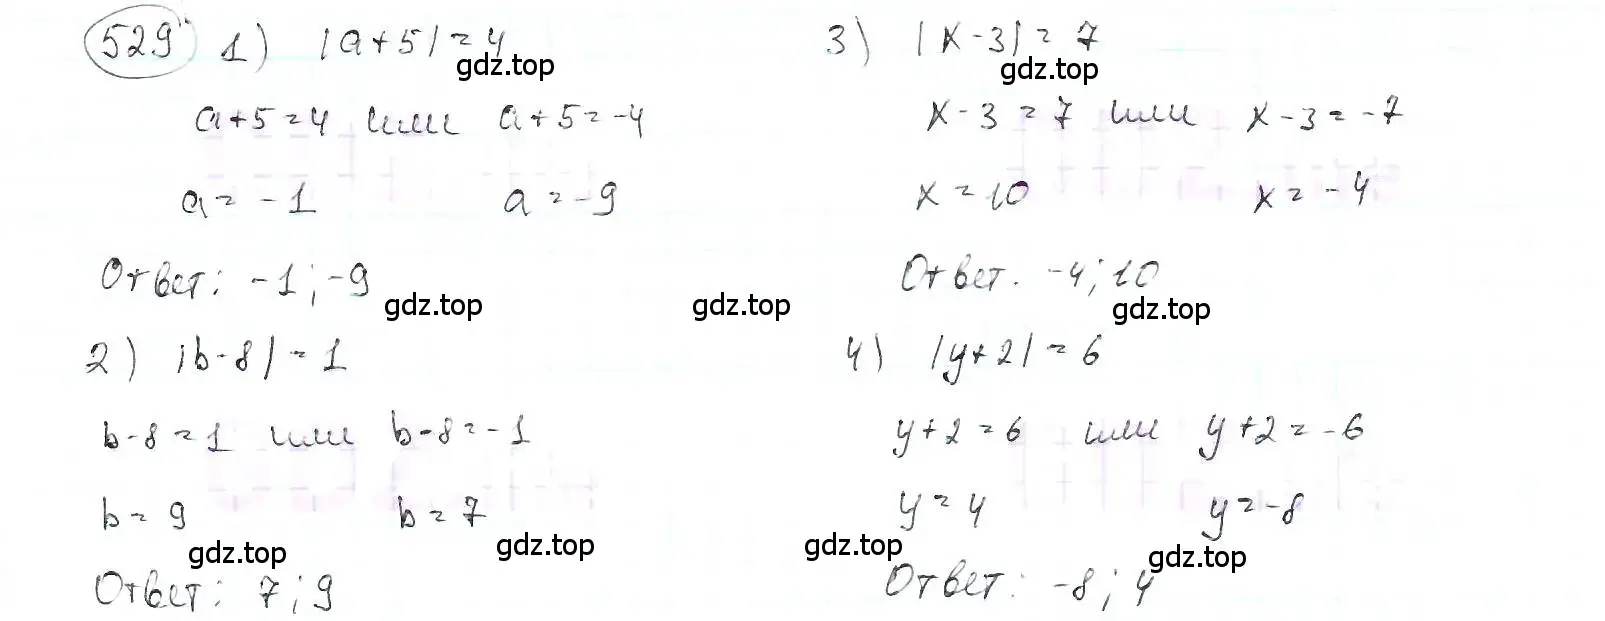 529 1) |a+5|=4
gdz.top
a+5=4 или a+5=-4
a=-1 a=-9
Ответ: -1; -9
gdz.top
2) |b-8|=1
b-8=1 или b-8=-1
b=9 b=7
gdz.top gdz.top
Ответ: 7; 9
3) |x-3|=7
gdz.top
x-3=7 или x-3=-7
x=10 x=-4
Ответ. -4; 10
gdz.top gdz.top
4) |y+2|=6
y+2=6 или y+2=-6
y=4 y=-8
gdz.top gdz.top
Ответ: -8; 4